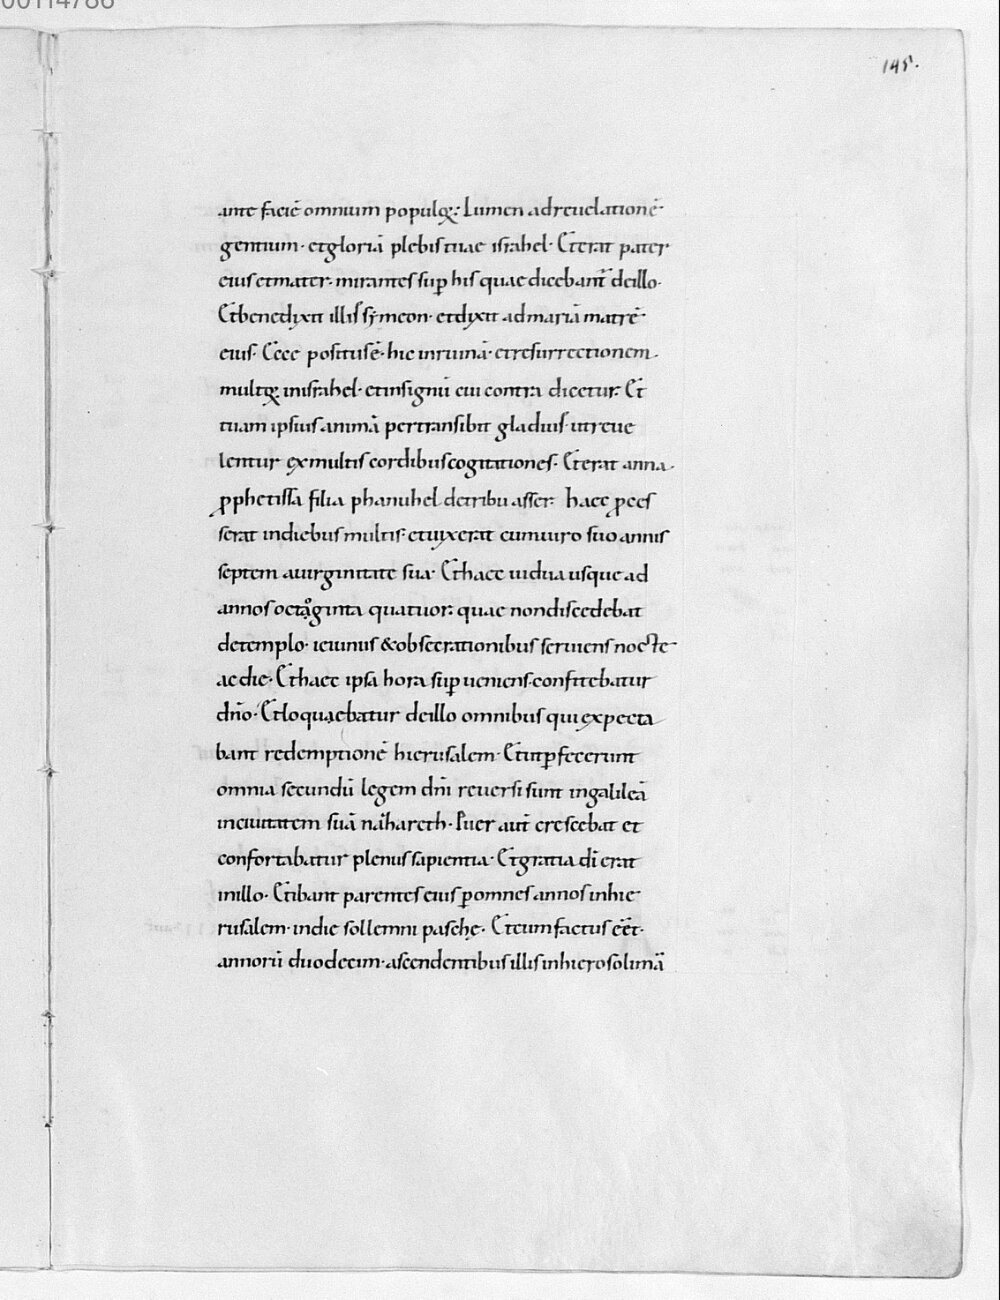 00114786
145.
ante faciē omnium populoꝝ: Lumen adreuelationē·
gentium· etgloriā plebistuae israhel· Eterat pater
eius etmater· mirantes sup̄ his quae dicebanť deillo·
Etbenedixit illis symeon· etdixit admariā matrē
eius· Ecce positus ē· hic inruinā· etresurrectionem·
multoꝝ inisrahel· etinsignū cui contra dicetur· Et
tuam ipsius animā pertransibit gladius· utreue
lentur exmultis cordibus cogitationes· Eterat anna·
ꝓphetissa filia phanuhel detribu asser· haec ꝓces
serat indiebus multis· etuixerat cumuiro suo annis
septem auirginitate sua· Ethaec uidua usque ad
annos octoginta quatuor· quae nondiscedebat
detemplo· ieiuniis &obsecrationibus seruiens nocte
acdie· Ethaec ipsa hora sup̄ ueniens· confitebatur
dn̄o· Etloquaebatur deillo omnibus qui expecta
bant redemptionē hierusalem· Etutꝑfecerunt
omnia secundū legem dn̄i reuersi sunt ingalileā
inciuitatem suā nazareth· Puer aut̄ crescebat et
confortabatur plenus sapientia· Etgratia dī erat
inillo· Etibant parentes eius ꝑomnes annos inhie
rusalem· indie sollemni paschę· Etcumfactus eēt·
annorū duodecim· ascendentibus illis inhierosolimā